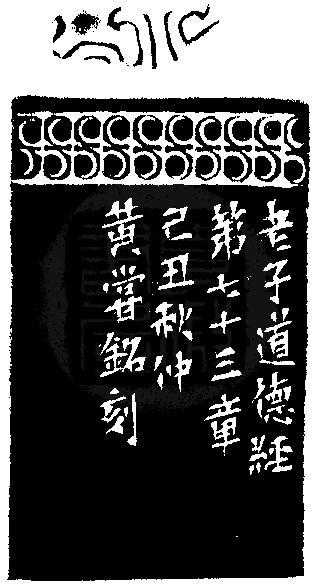 老子道德經
第七十三章
己丑秋仲
黄嘗銘刻